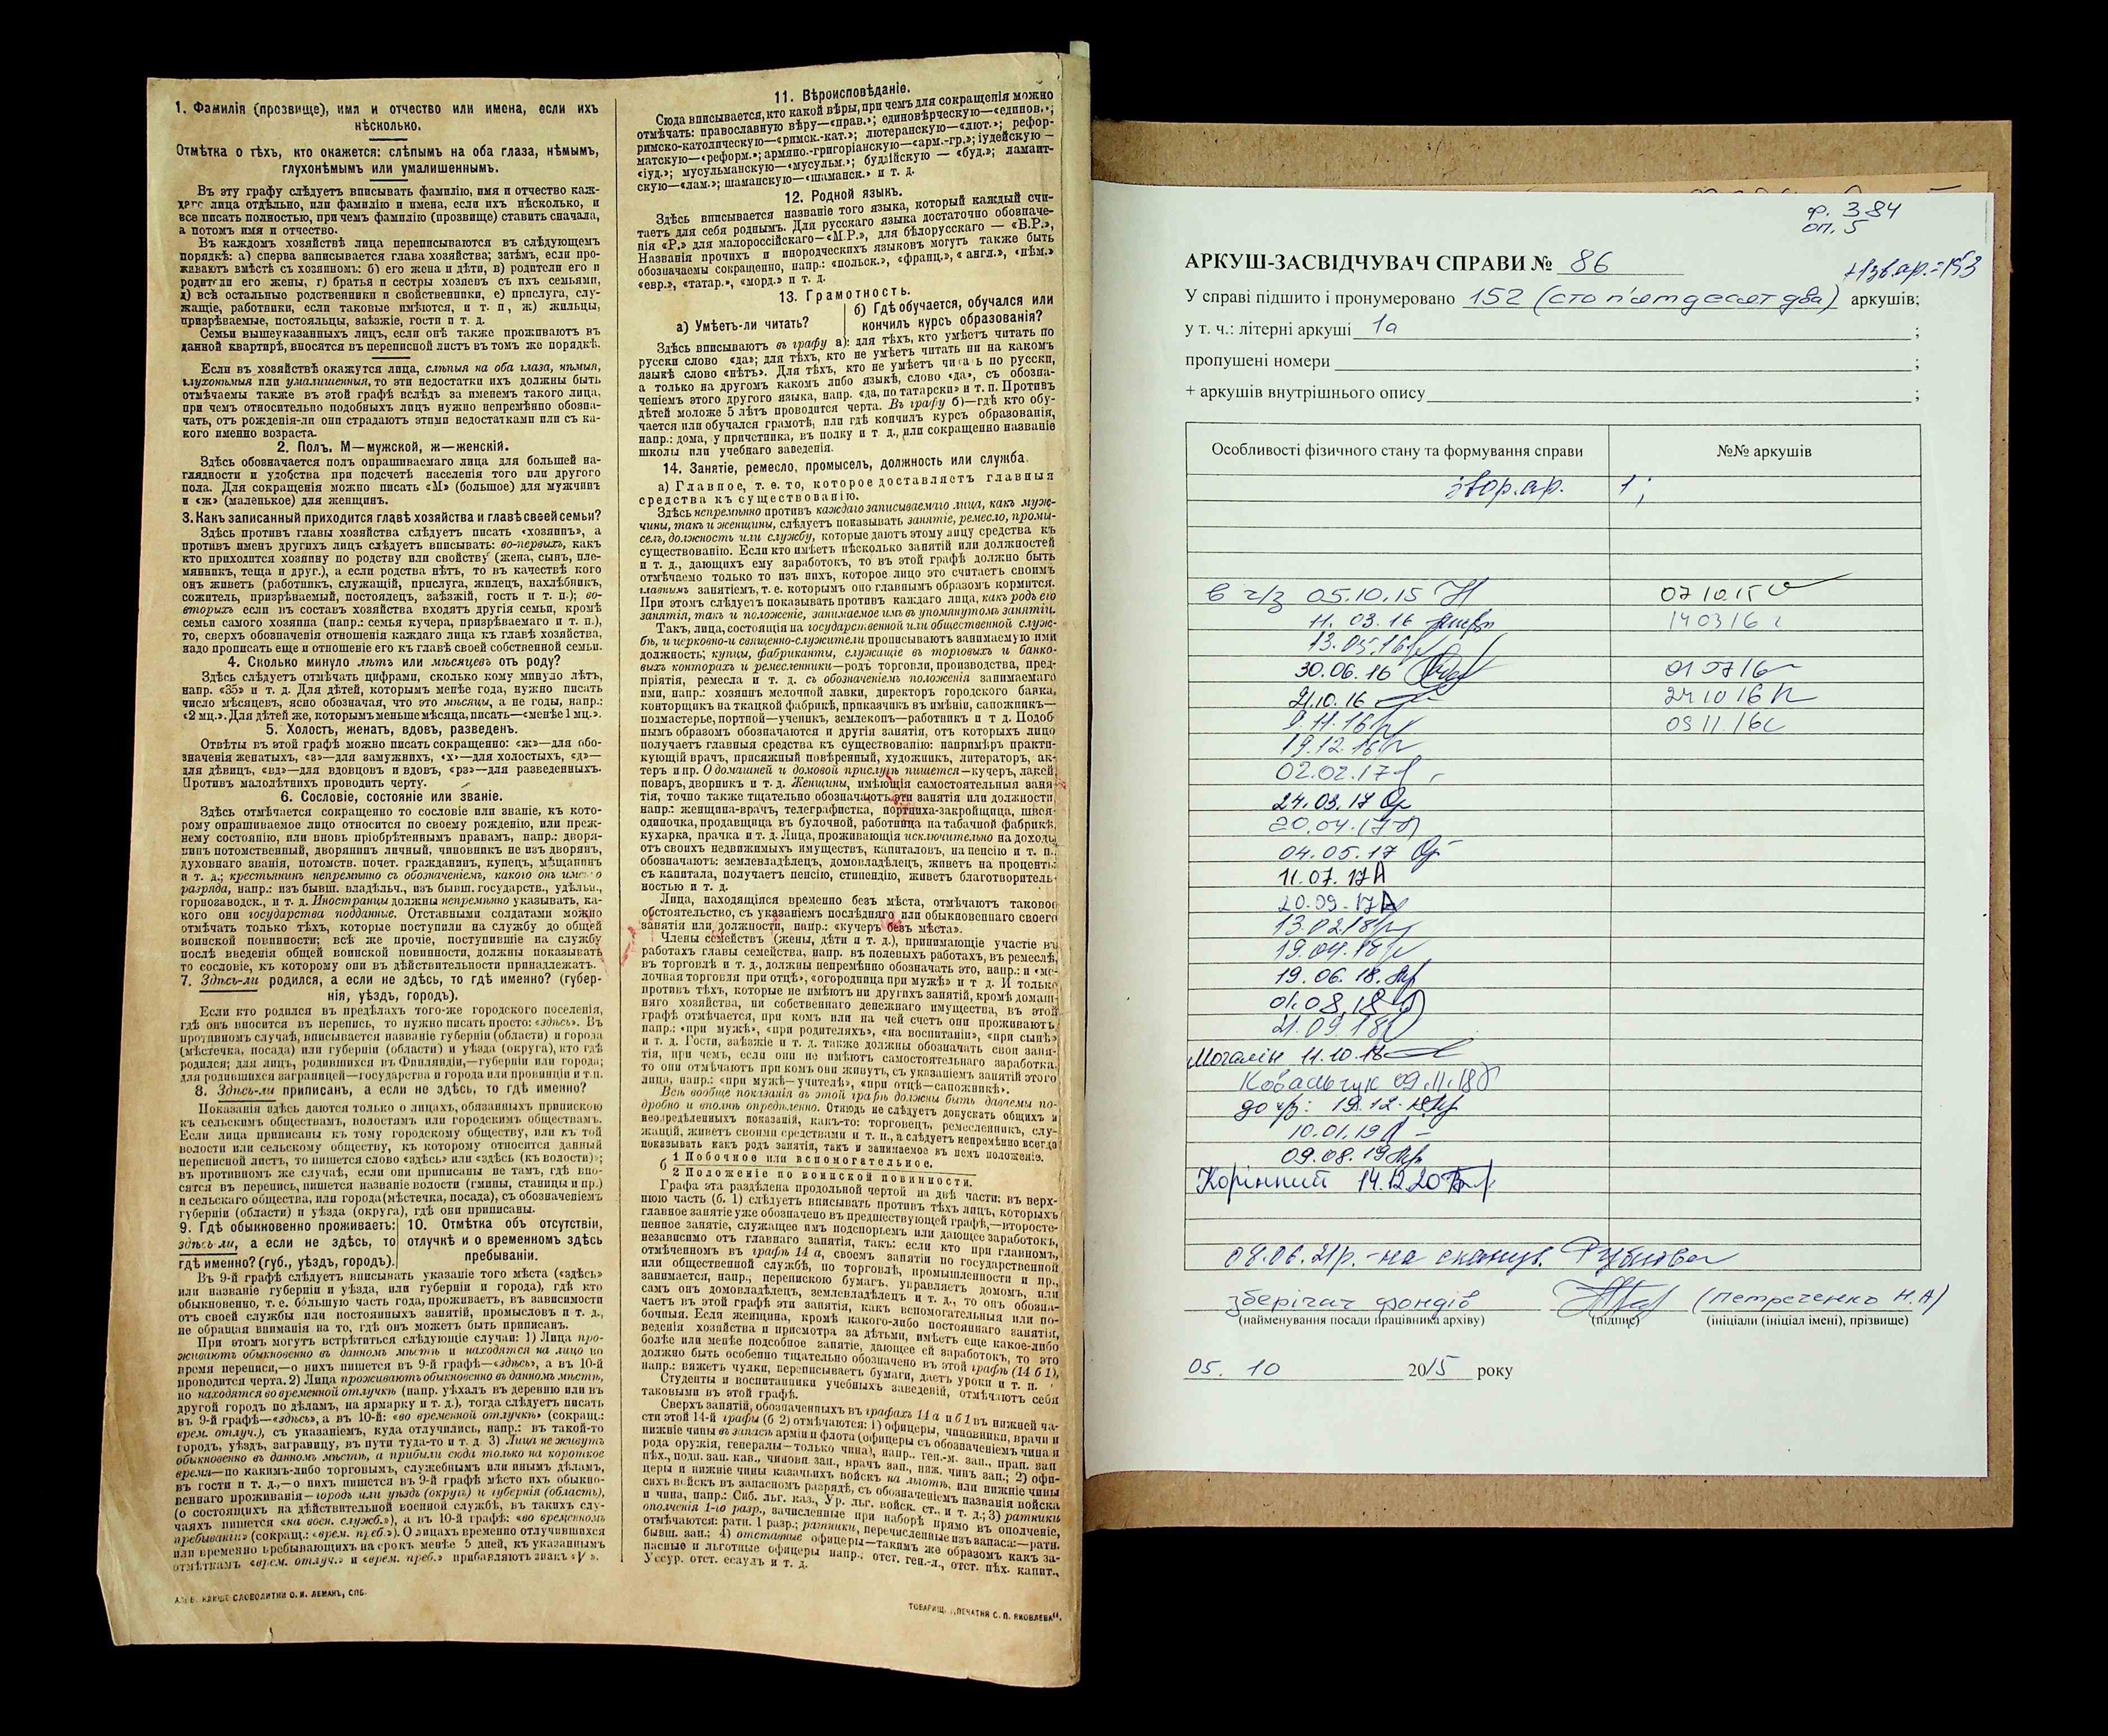 1. Фамилія (прозвище), имя и отчество или имена, если ихъ
нѣсколько.
Отмѣтка о тѣхъ, кто окажется: слѣпымъ на оба глаза, нѣмымъ,
глухонѣмымъ или умалишеннымъ.
Въ эту графу слѣдуетъ вписывать фамилію, имя и отчество каж-
даго лица отдѣльно, или фамилію и имена, если ихъ нѣсколько, и
все писать полностью, при чемъ фамилію (прозвище) ставить сначала,
а потомъ имя и отчество.
Въ каждомъ хозяйствѣ лица переписываются въ слѣдующемъ
порядкѣ: а) сперва записывается глава хозяйства; затѣмъ, если про-
живаютъ вмѣстѣ съ хозяиномъ: б) его жена и дѣти, в) родители его и
родители его жены, г) братья и сестры хозяевъ съ ихъ семьями,
д) всѣ остальные родственники и свойственники, е) прислуга, слу-
жащіе, работники, если таковые имѣются, и т. п., ж) жильцы,
призрѣваемые, постояльцы, заѣзжіе, гости и т. д.
Семьи вышеуказанныхъ лицъ, если онѣ также проживаютъ въ
данной квартирѣ, вносятся въ переписной листъ въ томъ же порядкѣ.
Если въ хозяйствѣ окажутся лица, слѣпыя на оба глаза, нѣмыя,
глухонѣмыя или умалишенныя, то эти недостатки ихъ должны быть
отмѣчаемы также въ этой графѣ вслѣдъ за именемъ такого лица,
при чемъ относительно подобныхъ лицъ нужно непремѣнно обозна-
чать, отъ рожденія-ли они страдаютъ этими недостатками или съ ка-
кого именно возраста.
2. Полъ. М—мужской, ж—женскій.
Здѣсь обозначается полъ опрашиваемаго лица для большей на-
глядности и удобства при подсчетѣ населенія того или другого
пола. Для сокращенія можно писать «М» (большое) для мужчинъ
и «ж» (маленькое) для женщинъ.
3. Какъ записанный приходится главѣ хозяйства и главѣ своей семьи?
Здѣсь противъ главы хозяйства слѣдуетъ писать «хозяинъ», а
противъ именъ другихъ лицъ слѣдуетъ вписывать: во-первыхъ, какъ
кто приходится хозяину по родству или свойству (жена, сынъ, пле-
мянникъ, теща и друг.), а если родства нѣтъ, то въ качествѣ кого
онъ живетъ (работникъ, служащій, прислуга, жилецъ, нахлѣбникъ,
сожитель, призрѣваемый, постоялецъ, заѣзжій, гость и т. п.); во-
вторыхъ если въ составъ хозяйства входятъ другія семьи, кромѣ
семьи самого хозяина (напр.: семья кучера, призрѣваемаго и т. п.),
то, сверхъ обозначенія отношенія каждаго лица къ главѣ хозяйства,
надо прописать еще и отношеніе его къ главѣ своей собственной семьи.
4. Сколько минуло лѣтъ или мѣсяцевъ отъ роду?
Здѣсь слѣдуетъ отмѣчать цифрами, сколько кому минуло лѣтъ,
напр. «35» и т. д. Для дѣтей, которымъ менѣе года, нужно писать
число мѣсяцевъ, ясно обозначая, что это мѣсяцы, а не годы, напр.:
«2 мц.». Для дѣтей же, которымъ меньше мѣсяца, писать—«менѣе 1 мц.».
5. Холостъ, женатъ, вдовъ, разведенъ.
Отвѣты въ этой графѣ можно писать сокращенно: «ж»—для обо-
значенія женатыхъ, «з»—для замужнихъ, «х»—для холостыхъ, «д»—
для дѣвицъ, «вд»—для вдовцовъ и вдовъ, «рз»—для разведенныхъ.
Противъ малолѣтнихъ проводить черту.
6. Сословіе, состояніе или званіе.
Здѣсь отмѣчается сокращенно то сословіе или званіе, къ кото-
рому опрашиваемое лицо относится по своему рожденію, или преж-
нему состоянію, или вновь пріобрѣтеннымъ правамъ, напр.: дворя-
нинъ потомственный, дворянинъ личный, чиновникъ не изъ дворянъ,
духовнаго званія, потомств. почет. гражданинъ, купецъ, мѣщанинъ
и т. д.; крестьянинъ непремѣнно съ обозначеніемъ, какого онъ именно
разряда, напр.: изъ бывш. владѣльч., изъ бывш. государств., удѣльн.,
горнозаводск., и т. д. Иностранцы должны непремѣнно указывать, ка-
кого они государства подданные. Отставными солдатами можно
отмѣчать только тѣхъ, которые поступили на службу до общей
воинской повинности; всѣ же прочіе, поступившіе на службу
послѣ введенія общей воинской повинности, должны показывать
то сословіе, къ которому они въ дѣйствительности принадлежатъ.
7. Здѣсь-ли родился, а если не здѣсь, то гдѣ именно? (губер-
нія, уѣздъ, городъ).
Если кто родился въ предѣлахъ того-же городского поселенія,
гдѣ онъ вносится въ перепись, то нужно писать просто: «здѣсь». Въ
противномъ случаѣ, вписывается названіе губерніи (области) и города
(мѣстечка, посада) или губерніи (области) и уѣзда (округа), кто гдѣ
родился; для лицъ, родившихся въ Финляндіи,—губерніи или города;
для родившихся заграницей—государства и города или провинціи и т.п.
8. Здѣсь-ли приписанъ, а если не здѣсь, то гдѣ именно?
Показанія здѣсь даются только о лицахъ, обязанныхъ припискою
къ сельскимъ обществамъ, волостямъ или городскимъ обществамъ.
Если лица приписаны къ тому городскому обществу, или къ той
волости или сельскому обществу, къ которому относится данный
переписной листъ, то пишется слово «здѣсь» или «здѣсь (къ волости)»;
въ противномъ же случаѣ, если они приписаны не тамъ, гдѣ вно-
сятся въ перепись, пишется названіе волости (гмины, станицы и пр.)
и сельскаго общества, или города (мѣстечка, посада), съ обозначеніемъ
губерніи (области) и уѣзда (округа), гдѣ они приписаны.
9. Гдѣ обыкновенно проживаетъ:
здѣсь-ли, а если не здѣсь, то
гдѣ именно? (губ., уѣздъ, городъ).
10. Отмѣтка объ отсутствіи,
отлучкѣ и о временномъ здѣсь
пребываніи.
Въ 9-й графѣ слѣдуетъ вписывать указаніе того мѣста («здѣсь»
или названіе губерніи и уѣзда, или губерніи и города), гдѣ кто
обыкновенно, т. е. большую часть года, проживаетъ, въ зависимости
отъ своей службы или постоянныхъ занятій, промысловъ и т. д.,
не обращая вниманія на то, гдѣ онъ можетъ быть приписанъ.
При этомъ могутъ встрѣтиться слѣдующіе случаи: 1) Лица про-
живаютъ обыкновенно въ данномъ мѣстѣ и находятся на лицо во
время переписи,—о нихъ пишется въ 9-й графѣ—«здѣсь», а въ 10-й
проводится черта. 2) Лица проживаютъ обыкновенно въ данномъ мѣстѣ,
но находятся во временной отлучкѣ (напр. уѣхалъ въ деревню или въ
другой городъ по дѣламъ, на ярмарку и т. д.), тогда слѣдуетъ писать
въ 9-й графѣ—«здѣсь», а въ 10-й: «во временной отлучкѣ» (сокращ.:
врем. отлуч.), съ указаніемъ, куда отлучились, напр.: въ такой-то
городъ, уѣздъ, заграницу, въ пути туда-то и т. д. 3) Лица не живутъ
обыкновенно въ данномъ мѣстѣ, а прибыли сюда только на короткое
время—по какимъ-либо торговымъ, служебнымъ или инымъ дѣламъ,
въ гости и т. д.,—о нихъ пишется въ 9-й графѣ мѣсто ихъ обыкно-
веннаго проживанія—городъ или уѣздъ (округъ) и губернія (область),
(о состоящихъ на дѣйствительной военной службѣ, въ такихъ слу-
чаяхъ пишется «на воен. служб.»), а въ 10-й графѣ: «во временномъ
пребываніи» (сокращ: «врем. преб.»). О лицахъ временно отлучившихся
или временно пребывающихъ на срокъ менѣе 5 дней, къ указаннымъ
отмѣткамъ «врем. отлуч.» и «врем. преб.» прибавляютъ знакъ «V».
СЛОВОЛИТНИ О. И. ЛЕМАНЪ, СПБ.
11. Вѣроисповѣданіе.
Сюда вписывается, кто какой вѣры, при чемъ для сокращенія можно
отмѣчать: православную вѣру—«прав.»; единовѣрческую—«единов.»;
римско-католическую—«римск.-кат.»; лютеранскую—«лют.»; рефор-
матскую—«реформ.»; армяно-григоріанскую—«арм.-гр.»; іудейскую—
«іуд.»; мусульманскую—«мусульм.»; буддійскую—«буд.»; ламаит-
скую—«лам.»; шаманскую—«шаманск.» и т. д.
12. Родной языкъ.
Здѣсь вписывается названіе того языка, который каждый счи-
таетъ для себя роднымъ. Для русскаго языка достаточно обозначе-
нія «Р.» для малороссійскаго—«М.Р.», для бѣлорусскаго — «Б.Р.»,
Названія прочихъ и инородческихъ языковъ могутъ также быть
обозначаемы сокращенно, напр.: «польск.», «франц.», «англ.», «нѣм.»
«евр.», «татар.», «морд.» и т. д.
13. Грамотность.
а) Умѣетъ-ли читать?
б) Гдѣ обучается, обучался или
кончилъ курсъ образованія?
Здѣсь вписываютъ въ графу а): для тѣхъ, кто умѣетъ читать по
русски слово «да»; для тѣхъ, кто не умѣетъ читать ни на какомъ
языкѣ слово «нѣтъ». Для тѣхъ, кто не умѣетъ читать по русски,
а только на другомъ какомъ либо языкѣ, слово «да», съ обозна-
ченіемъ этого другого языка, напр. «да, по татарски» и т. п. Противъ
дѣтей моложе 5 лѣтъ проводится черта. Въ графу б)—гдѣ кто обу-
чается или обучался грамотѣ, или гдѣ кончилъ курсъ образованія,
напр.: дома, у причетника, въ полку и т. д., или сокращенно названіе
школы или учебнаго заведенія.
14. Занятіе, ремесло, промыселъ, должность или служба.
а) Главное, т. е. то, которое доставляетъ главныя
средства къ существованію.
Здѣсь непремѣнно противъ каждаго записываемаго лица, какъ муж-
чины, такъ и женщины, слѣдуетъ показывать занятіе, ремесло, промы-
селъ, должность или службу, которые даютъ этому лицу средства къ
существованію. Если кто имѣетъ нѣсколько занятій или должностей
и т. д., дающихъ ему заработокъ, то въ этой графѣ должно быть
отмѣчаемо только то изъ нихъ, которое лицо это считаетъ своимъ
главнымъ занятіемъ, т. е. которымъ оно главнымъ образомъ кормится.
При этомъ слѣдуетъ показывать противъ каждаго лица, какъ родъ его
занятія, такъ и положеніе, занимаемое имъ въ упомянутомъ занятіи.
Такъ, лица, состоящія на государственной или общественной служ-
бѣ, и церковно-и священно-служители прописываютъ занимаемую ими
должность; купцы, фабриканты, служащіе въ торговыхъ и банко-
выхъ конторахъ и ремесленники—родъ торговли, производства, пред-
пріятія, ремесла и т. д. съ обозначеніемъ положенія занимаемаго
ими, напр.: хозяинъ мелочной лавки, директоръ городского банка,
конторщикъ на ткацкой фабрикѣ, приказчикъ въ имѣніи, сапожникъ—
подмастерье, портной—ученикъ, землекопъ—работникъ и т д. Подоб
нымъ образомъ обозначаются и другія занятія, отъ которыхъ лицо
получаетъ главныя средства къ существованію: напримѣръ практи-
кующій врачъ, присяжный повѣренный, художникъ, литераторъ, ак-
теръ и пр. О домашней и домовой прислугѣ пишется—кучеръ, лакей,
поваръ, дворникъ и т. д. Женщины, имѣющія самостоятельныя заня
тія, точно также тщательно обозначаютъ эти занятія или должности
напр.: женщина-врачъ, телеграфистка, портниха-закройщица, швея-
одиночка, продавщица въ булочной, работница на табачной фабрикѣ,
кухарка, прачка и т. д. Лица, проживающія исключительно на доходы
отъ своихъ недвижимыхъ имуществъ, капиталовъ, на пенсію и т. п.,
обозначаютъ: землевладѣлецъ, домовладѣлецъ, живетъ на проценты
съ капитала, получаетъ пенсію, стипендію, живетъ благотворитель-
ностью и т. д.
Лица, находящіяся временно безъ мѣста, отмѣчаютъ таковое
обстоятельство, съ указаніемъ послѣдняго или обыкновеннаго своего
занятія или должности, напр.: «кучеръ безъ мѣста».
Члены семействъ (жены, дѣти и т. д.), принимающіе участіе въ
работахъ главы семейства, напр. въ полевыхъ работахъ, въ ремеслѣ,
въ торговлѣ и т. д., должны непремѣнно обозначать это, напр.: и «ме-
лочная торговля при отцѣ», «огородница при мужѣ» и т д. И только
противъ тѣхъ, которые не имѣютъ ни другихъ занятій, кромѣ домаш-
няго хозяйства, ни собственнаго денежнаго имущества, въ этой
графѣ отмѣчается, при комъ или на чей счетъ они проживаютъ,
напр.: «при мужѣ», «при родителяхъ», «на воспитаніи», «при сынѣ»
и т. д. Гости, заѣзжіе и т. д. также должны обозначать свои заня-
тія, при чемъ, если они не имѣютъ самостоятельнаго заработка,
то они отмѣчаютъ при комъ они живутъ, съ указаніемъ занятій этого
лица, напр.: «при мужѣ—учителѣ», «при отцѣ—сапожникѣ».
Всѣ вообще показанія въ этой графѣ должны быть даваемы по-
дробно и вполнѣ опредѣленно. Отнюдь не слѣдуетъ допускать общихъ и
неопредѣленныхъ показаній, какъ-то: торговецъ, ремесленникъ, слу-
жащій, живетъ своими средствами и т. п., а слѣдуетъ непремѣнно всегда
показывать какъ родъ занятія, такъ и занимаемое въ немъ положеніе.
б 1 Побочное или вспомогательное.
2 Положеніе по воинской повинности.
Графа эта раздѣлена продольной чертой на двѣ части: въ верх-
нюю часть (б. 1) слѣдуетъ вписывать противъ тѣхъ лицъ, которыхъ
главное занятіе уже обозначено въ предшествующей графѣ,—второсте-
пенное занятіе, служащее имъ подспорьемъ или дающее заработокъ,
независимо отъ главнаго занятія, такъ: если кто при главномъ,
отмѣченномъ въ графѣ 14 а, своемъ занятіи по государственной
или общественной службѣ, по торговлѣ, промышленности и пр.,
занимается, напр., перепискою бумагъ, управляетъ домомъ, или
самъ онъ домовладѣлецъ, землевладѣлецъ и т. д., то онъ обозна-
чаетъ въ этой графѣ эти занятія, какъ вспомогательныя или по-
бочныя. Если женщина, кромѣ какого-либо постояннаго занятія,
веденія хозяйства и присмотра за дѣтьми, имѣетъ еще какое-либо
болѣе или менѣе подсобное занятіе, дающее ей заработокъ, то это
должно быть особенно тщательно обозначено въ этой графѣ (14 б 1),
напр.: вяжетъ чулки, переписываетъ бумаги, даетъ уроки и т. п.
Студенты и воспитанники учебныхъ заведеній, отмѣчаютъ себя
таковыми въ этой графѣ.
Сверхъ занятій, обозначенныхъ въ графахъ 14 а и б 1 въ нижней ча-
сти этой 14-й графы (б 2) отмѣчаются: 1) офицеры, чиновники, врачи и
нижніе чины въ запасѣ арміи и флота (офицеры съ обозначеніемъ чина и
рода оружія, генералы—только чина), напр., ген.-м. зап., прап. зап
пѣх., подп. зап. кав., чиновн. зап., врачъ зап., ниж. чинъ зап.; 2) офи-
церы и нижніе чины казачьихъ войскъ на льготѣ, или нижніе чины
сихъ войскъ въ запасномъ разрядѣ, съ обозначеніемъ названія войска
и чина, напр.: Сиб. льг. каз., Ур. льг. войск. ст., и т. д.; 3) ратники
ополченія 1-го разр., зачисленные при наборѣ прямо въ ополченіе,
отмѣчаются: ратн. 1 разр.; ратники, перечисленные изъ запаса:—ратн.
бывш. зап.; 4) отставные офицеры—такимъ же образомъ какъ за-
пасные и льготные офицеры напр.: отст. ген.-л., отст. пѣх. капит.,
Уссур. отст. есаулъ и т. д.
ТОВАРИЩ. „ПЕЧАТНЯ С. П. ЯКОВЛЕВА“.
ф. 384
оп. 5
АРКУШ-ЗАСВІДЧУВАЧ СПРАВИ № 86
+1зв.ар.=153
У справі підшито і пронумеровано 152 (сто п'ятдесят два) аркушів;
у т. ч.: літерні аркуші 1а ;
пропущені номери ;
+ аркушів внутрішнього опису ;
Особливості фізичного стану та формування справи №№ аркушів
звор.ар. 1;
в ч/з 05.10.15 07 10.15
11. 03. 16 14 03 16
13.05.16
30.06.16 01 07 16
21.10.16 24 10 16
9.11.16 09 11.16
19.12.16
02.02.17
24.03.17
20.04.17
04.05.17
11.07.17
20.09.17
13.02.18
19.04.18
19.06.18.
01.08.18
21.09.18
Могалін 11.10.18
Ковальчук 09.11.18
до ч/з: 19.12.18
10.01.19
09.08.19
Корінний 14.12.20
08.06.21р. - на сканув.
зберігач фондів (Петреченко Н.А)
(найменування посади працівника архіву) (підпис) (ініціали (ініціал імені), прізвище)
05. 10 2015 року